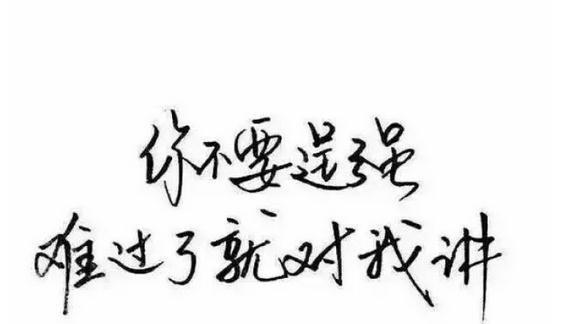 你不要逞强
难过了就对我讲